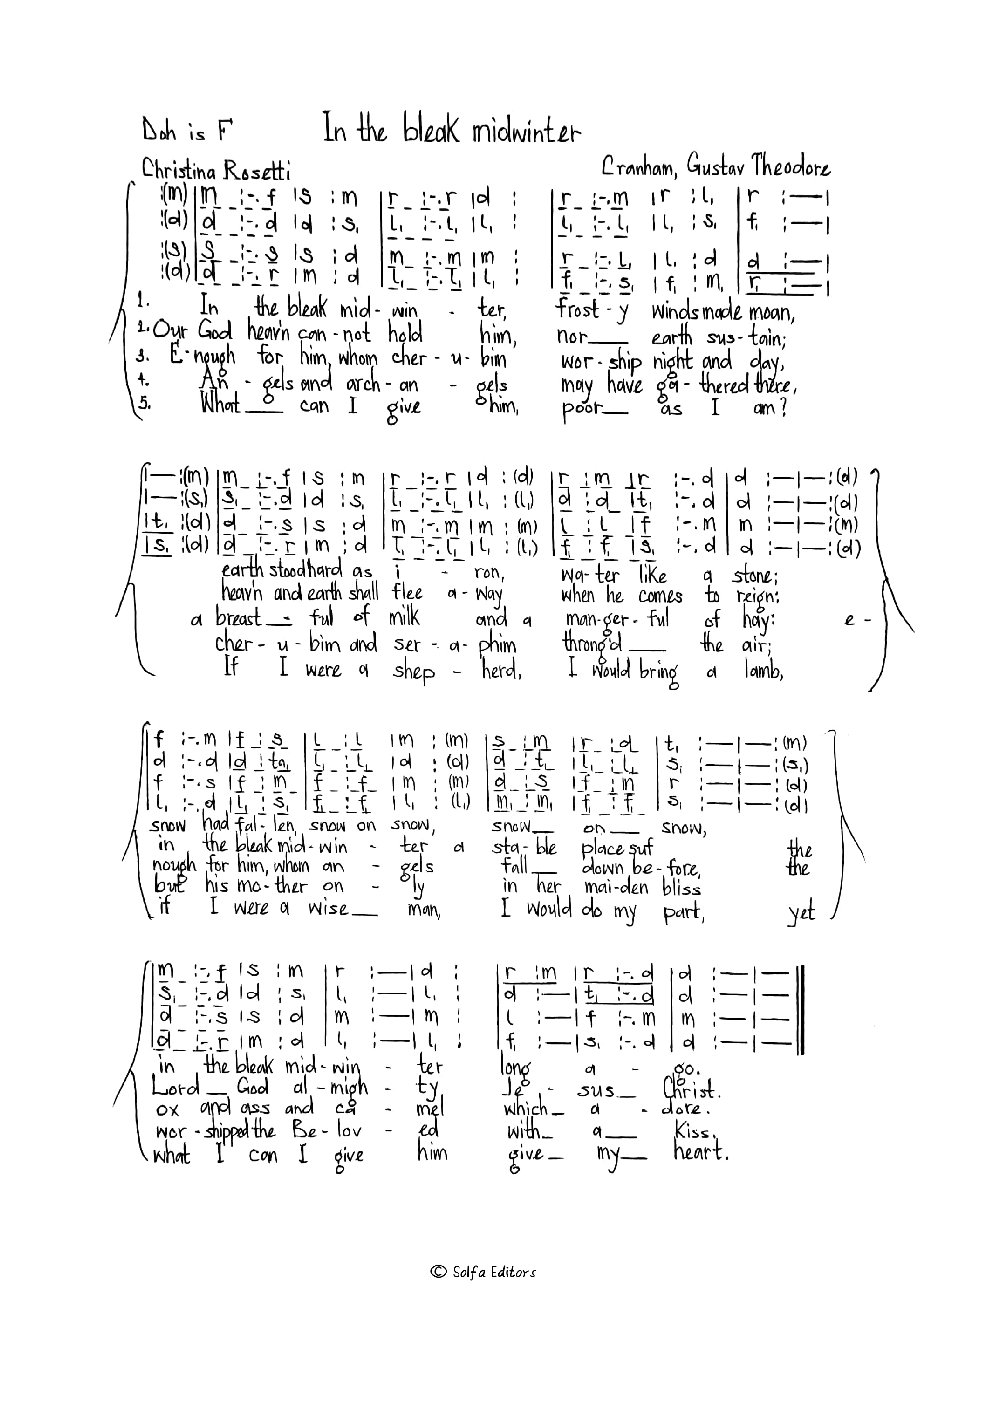 Doh is F In the bleak midwinter
Christina Rosetti Cranham, Gustav Theodore
:(m) |m :-.f |s :m |r :-.r |d : |r :-.m |r :l, |r :—|
:(d) |d :-.d |d :s, |l, :-.l, |l, : |l, :-.l, |l, :s, |f, :—|
:(s) |s :-.s |s :d |m :-.m |m : |r :-.l, |l, :d |d :—|
:(d) |d :-.r |m :d |l, :-.l, |l, : |f, :-.s, |f, :m, |r, :—|
1. In the bleak mid-win - ter, frost-y winds made moan,
2. Our God heav'n can-not hold him, nor___ earth sus-tain;
3. E-nough for him, whom cher-u-bim wor-ship night and day,
4. An - gels and arch-an - gels may have ga-thered there,
5. What___ can I give him, poor___ as I am?
|—:(m) |m :-.f |s :m |r :-.r |d :(d) |r :m |r :-.d |d :—|—:(d)
|—:(s,) |s, :-.d |d :s, |l, :-.l, |l, :(l,) |d :d |t, :-.d |d :—|—:(d)
|t, :(d) |d :-.s |s :d |m :-.m |m :(m) |l :l |f :-.m |m :—|—:(m)
|s, :(d) |d :-.r |m :d |l, :-.l, |l, :(l,) |f, :f, |s, :-.d |d :—|—:(d)
earth stood hard as i - ron, wa-ter like a stone;
heav'n and earth shall flee a-way when he comes to reign:
a breast_-_ ful of milk and a man-ger-ful of hay: e-
cher-u-bim and ser-a-phim throng'd ___ the air;
If I were a shep - herd, I would bring a lamb,
f :-.m |f :s |l :l |m :(m) |s :m |r :d |t, :—|—:(m)
d :-.d |d :ta, |l, :l, |d :(d) |d :t, |l, :l, |s, :—|—:(s,)
f :-.s |f :m |f :f |m :(m) |d :s |f :m |r :—|—:(d)
l, :-.d |l, :s, |f, :f, |l, :(l,) |m, :m, |f, :f, |s, :—|—:(d)
snow had fal-len, snow on snow, snow___ on___ snow,
in the bleak mid-win - ter a sta-ble place suf the
nough for him, whom an - gels fall___ down be-fore, the
but his mo-ther on - ly in her mai-den bliss
if I were a wise___ man, I would do my part, yet
|m :-.f |s :m |r :—|d : |r :m |r :-.d |d :—|—||
|s, :-.d |d :s, |l, :—|l, : |d :—|t, :-.d |d :—|—||
|d :-.s |s :d |m :—|m : |l :—|f :-.m |m :—|—||
|d :-.r |m :d |l, :—|l, : |f, :—|s, :-.d |d :—|—||
in the bleak mid-win - ter long a - go.
Lord__ God al-migh - ty Je - sus__ Christ.
ox and ass and ca - mel which_ a - dore.
wor-shipped the Be-lov - ed with_ a__ kiss.
what I can I give him give_ my__ heart.
© Solfa Editors